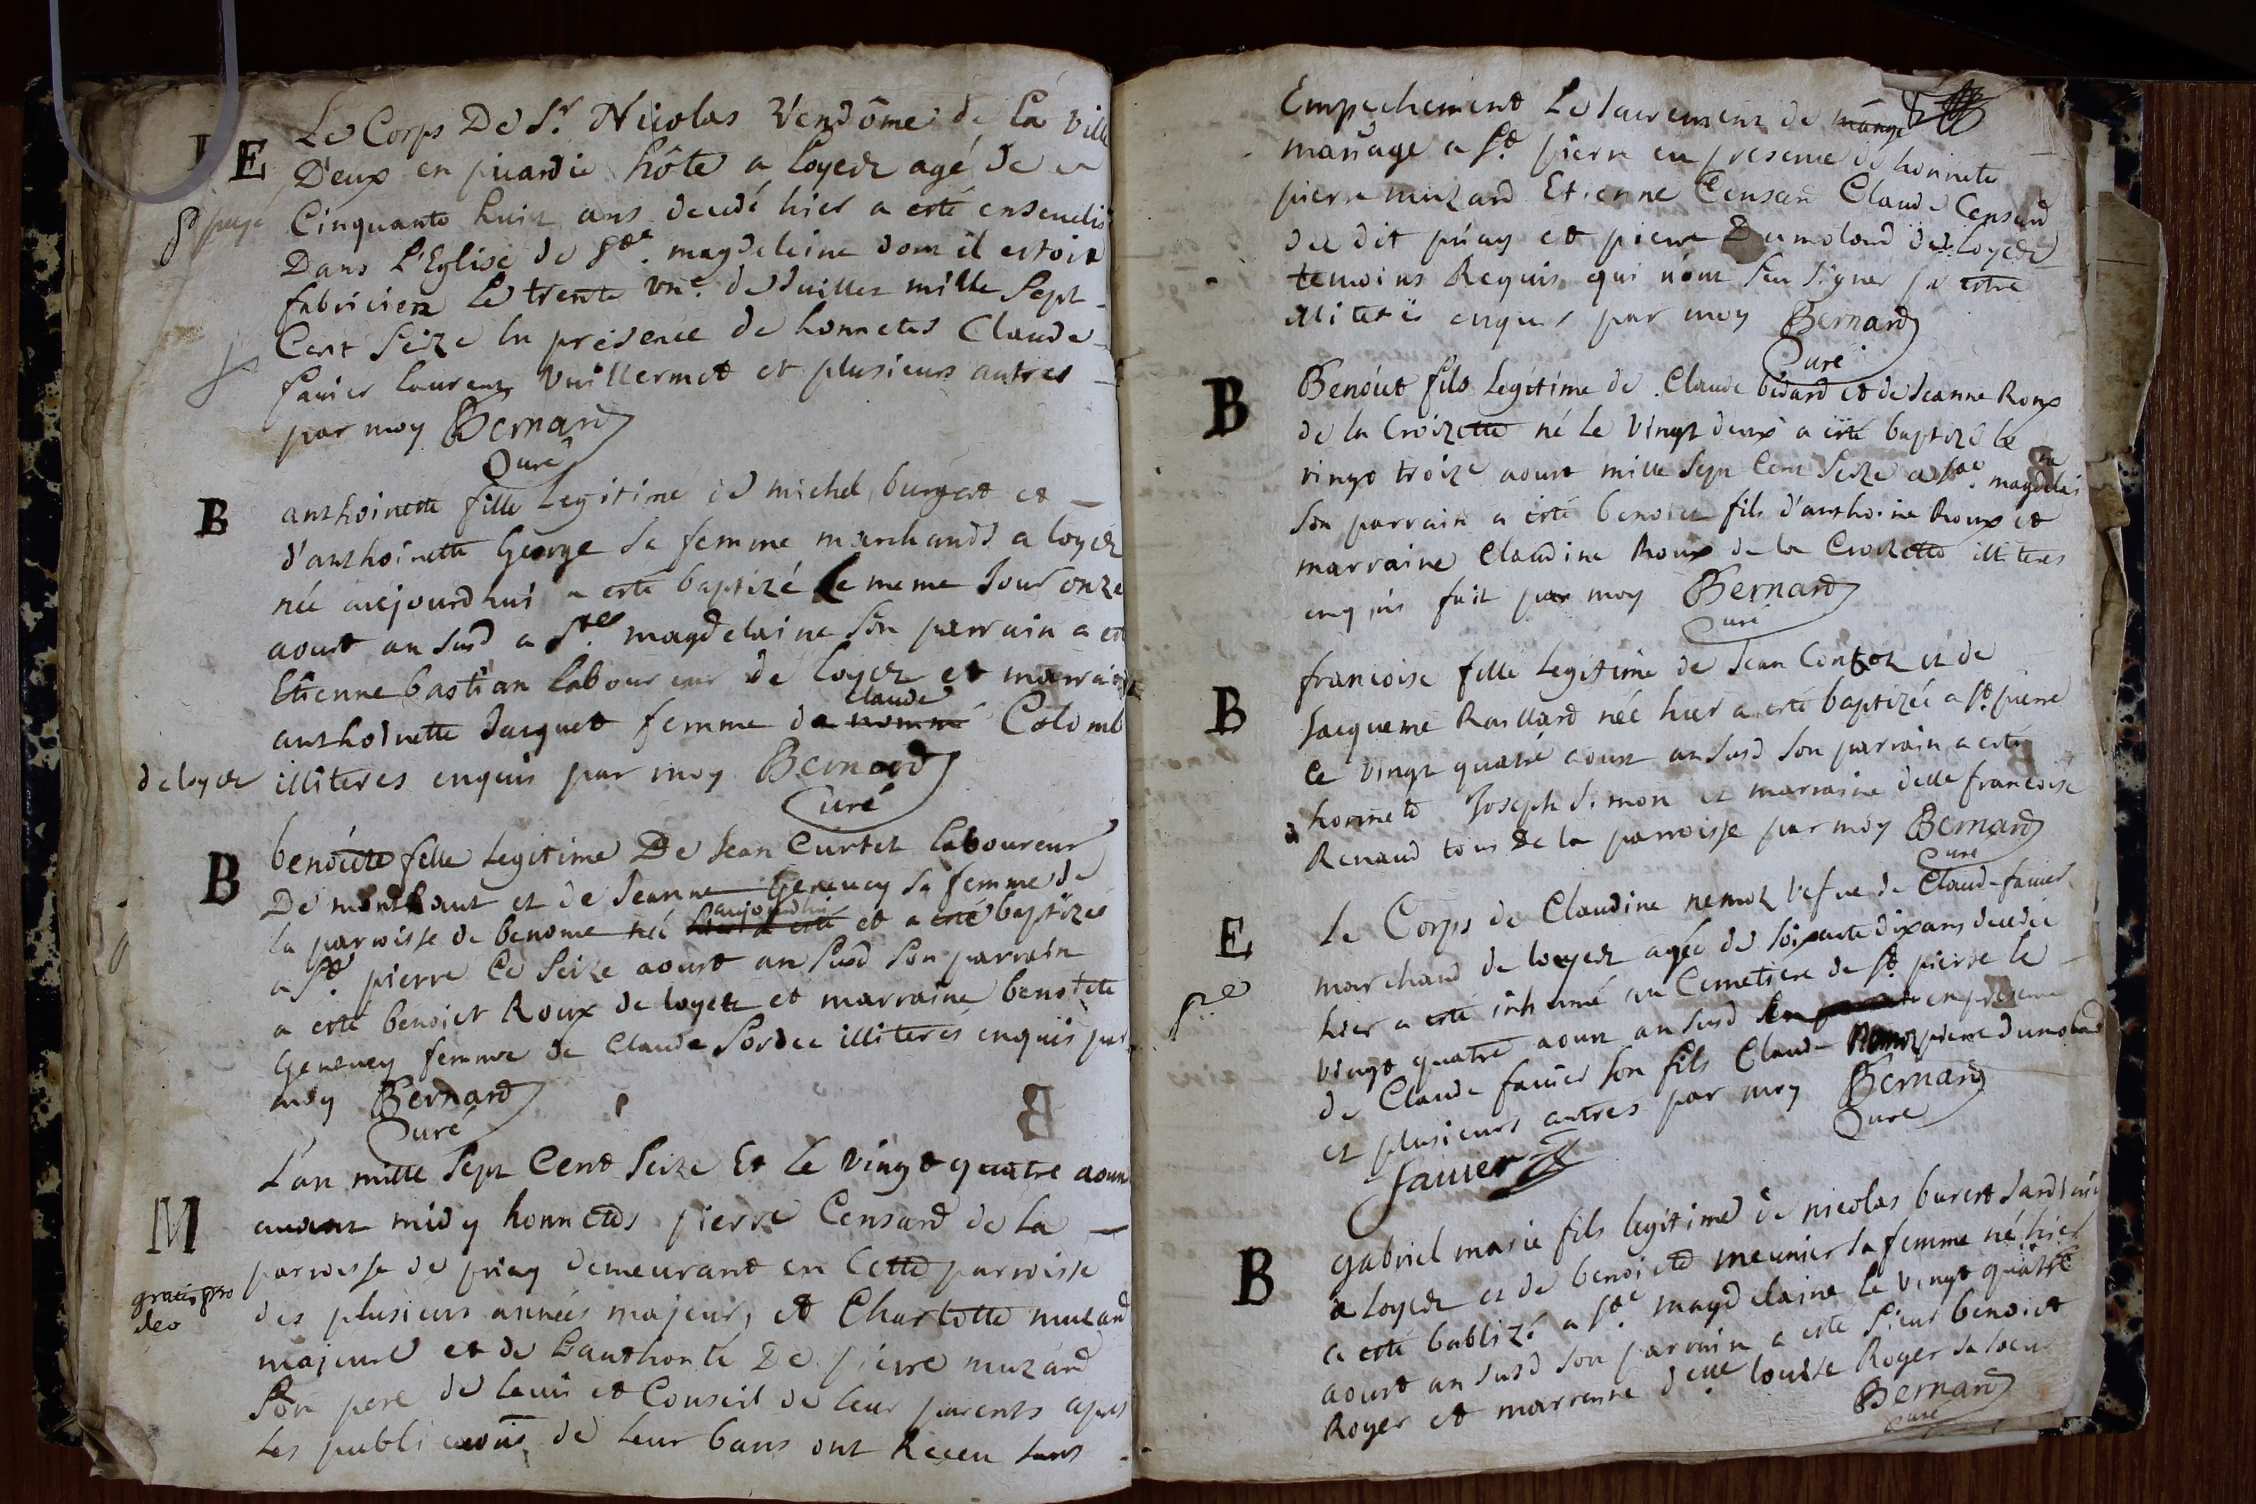 E
Le Corps De Sr. Nicolas Vendôme de la ville
D'eux en picardie hôte a loyete agé de
Cinquante huit ans decedé hier a esté enseveli
Dans L'Eglise de Ste. magdeleine dont il estoit
fabricien Le trente une. de Juillet mille Sept
Cent Seize En présence de honnetes Claude
favier laurent Vuillermot et plusieurs autres
par moy Bernard
Curé
B
anthoinette fille Legitime de michel burgeat et
d'anthoinette George Sa femme marchands a loyete
née aujourdhui a esté baptizé Le meme Jour onze
aoust an Susd a Ste magdelaine Son parrain a esté
Etienne bastian laboureur de loyete et marraine
claude
anthoinette Jacquet femme de nommé Colomb
de loyete illiteres enquis par moy Bernard
Curé
B
benoicte fille Legitime De Jean Curtet laboureur
De monthaut et de Jeanne Genevey Sa femme de
aujourdhui
la parroisse de benonce née hier a esté et a esté baptizée
a St. pierre Le Seize aoust an Susd Son parrain
a esté benoict Roux de loyete et marraine benoicte
Genevey femme de Claude Sordee illiteres enquis par
moy Bernard
Curé
M
gratis pro
deo
L'an mille Sept Cent Seize Et Le Vingt quatre aoust
avant midy honnetes pierre Censard de la
parroisse de priay demeurant en Cette parroisse
des plusieurs années majeur, et Charlotte muzard
majeure et de L'authorité De pierre muzard
Son pere de lavis et Conseil de leur parents apres
Les publications de Leur bans ont Receu Sans
Empechement Le Sacrement de mange
mariage a St. pierre en presence de honnete
pierre muzard Etienne Censard Claude Censard
du dit priay et pierre Dumolard de loyete
temoins Requis qui n'ont Seu Signer pr estre
illiteres enquis par moy Bernard
Curé
B
Benoict fils Legitime de Claude bidard et de Jeanne Roux
de la Croizette né Le Vingt deux a esté baptizé le
vingt troize aoust mille Sept Cent Seize a Ste magdelaine
Son parrain a esté benoict fils d'anthoine Roux et
marraine Claudine Roux de la Croizette illiteres
enquis fait par moy Bernard
Curé
B
francoise fille Legitime de Jean Contet et de
Jacqueme Raillard née hier a esté baptizée a St. pierre
Le vingt quatre aoust an Susd Son parrain a esté
honnete Joseph Simon et marraine delle francoise
Renaud tous de la parroisse par moy Bernard
Curé
E
Le Corps de Claudine nemoz Vefve de Claude favier
marchand de loyete agée de Soixante dix ans decedée
hier a esté inhumé au Cemetiere de St. pierre le
vingt quatre aoust an Susd en presence
de Claude favier Son fils Claude nemoz pierre dumolard
et plusieurs autres par moy Bernard
Curé
favier
B
Gabriel marie fils legitime de nicolas buret Jardinier
a loyete et de benoicte meunier Sa femme né hier
a esté babtizé a Ste. magdelaine le vingt quatre
aoust an Susd Son parrain a esté Sieur benoict
Roger et marraine delle louise Roger Sa Soeur
Bernard
Curé